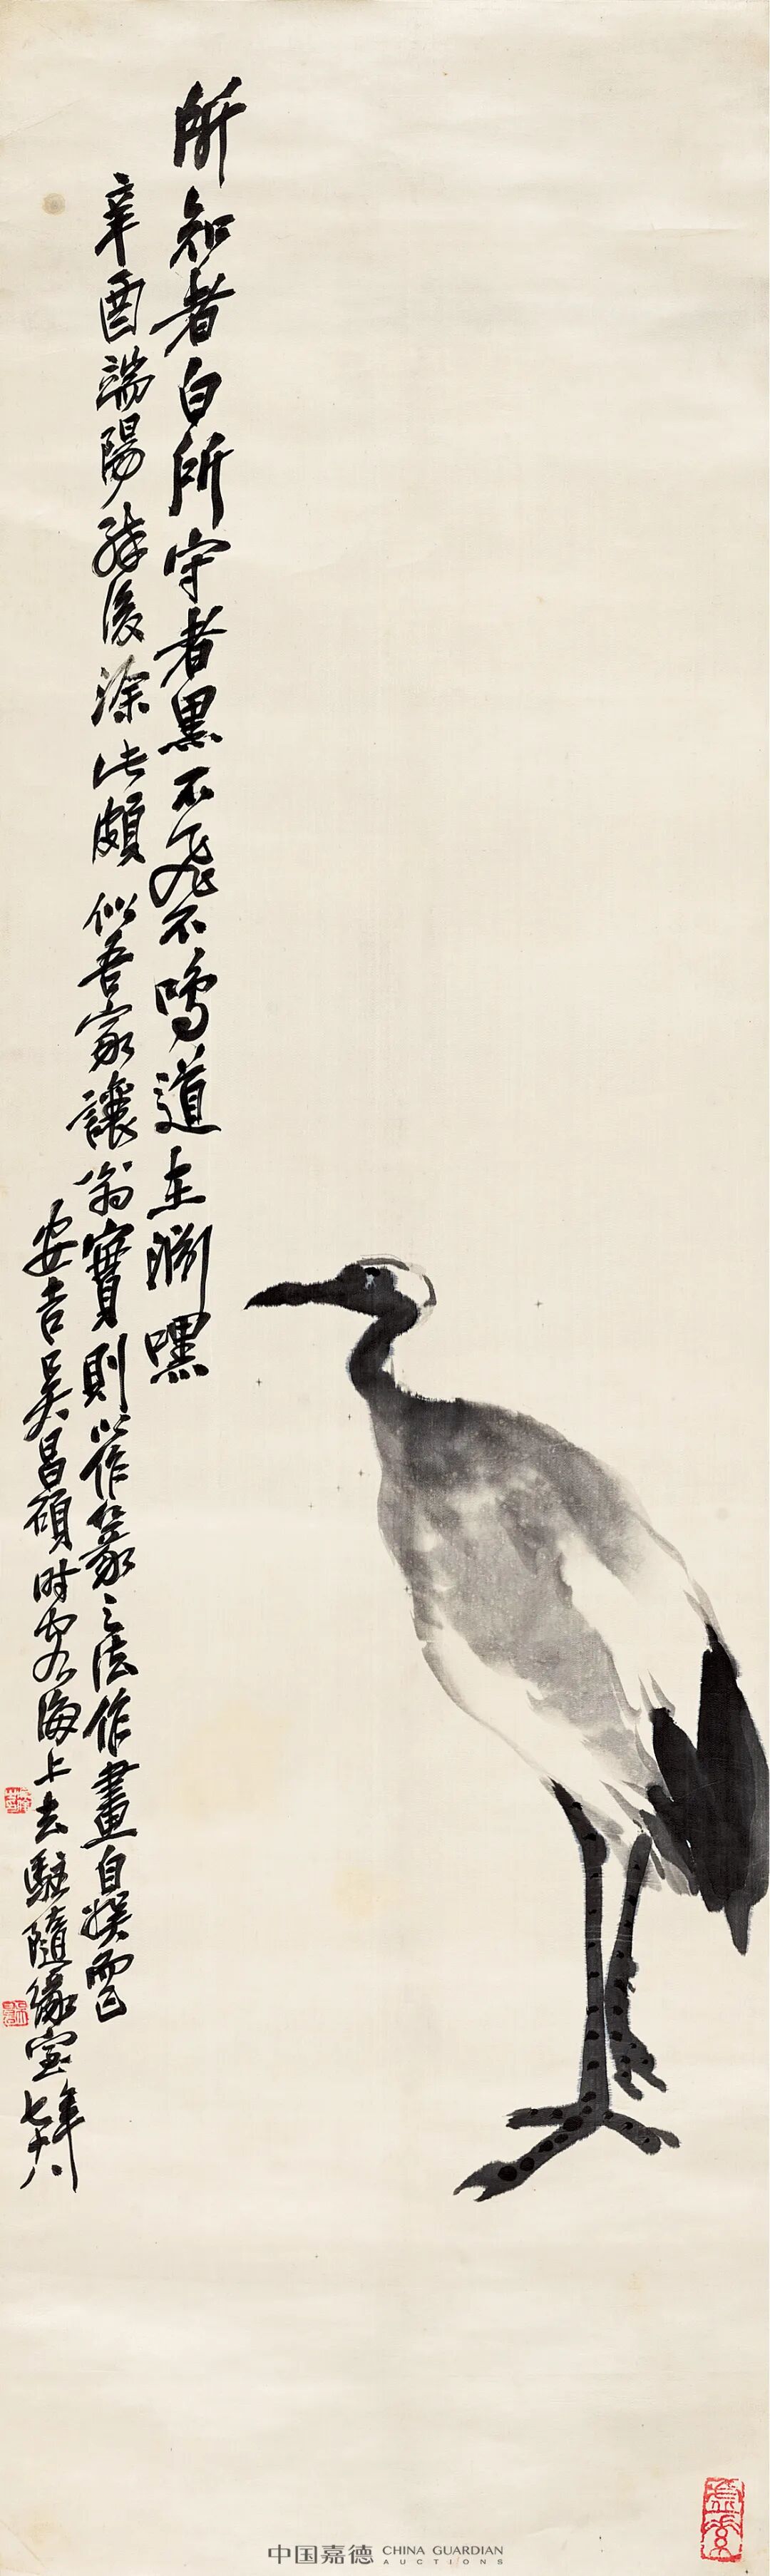 所知者白所守者黑不飛不鳴道在淵嘿
辛酉端陽殘後塗此頗似吾家讓翁實則以作篆之法作畫自娛而已
安吉吳昌碩時客海上去駐隨緣室年七十八
中国嘉德 CHINA GUARDIAN
AUCTIONS